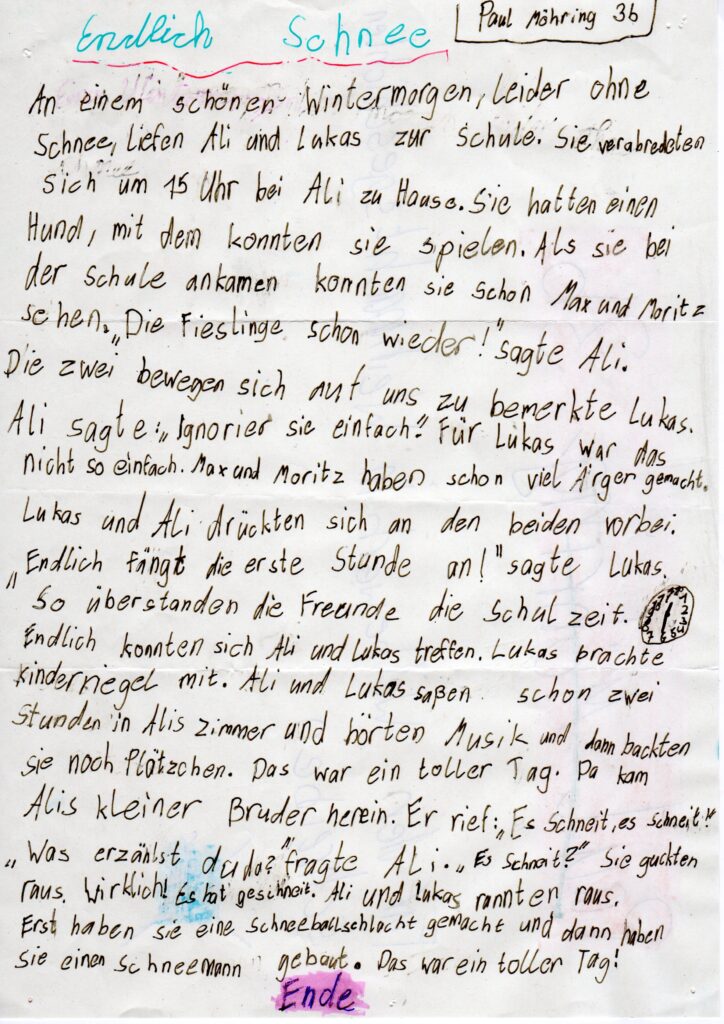 Paul Möhring 3b
Endlich Schnee
An einem schönen Wintermorgen, leider ohne
Schnee, liefen Ali und Lukas zur Schule. Sie verabredeten
sich um 15 Uhr bei Ali zu Hause. Sie hatten einen
Hund, mit dem konnten sie spielen. Als sie bei
der Schule ankamen konnten sie schon Max und Moritz
sehen. „Die Fieslinge schon wieder!" sagte Ali.
Die zwei bewegen sich auf uns zu bemerkte Lukas.
Ali sagte: „Ignorier sie einfach." Für Lukas war das
nicht so einfach. Max und Moritz haben schon viel Ärger gemacht.
Lukas und Ali drückten sich an den beiden vorbei.
„Endlich fängt die erste Stunde an!" sagte Lukas.
So überstanden die Freunde die Schulzeit.
Endlich konnten sich Ali und Lukas treffen. Lukas brachte
Kinderriegel mit. Ali und Lukas saßen schon zwei
Stunden in Alis Zimmer und hörten Musik und dann backten
sie noch Plätzchen. Das war ein toller Tag. Da kam
Alis kleiner Bruder herein. Er rief: „Es schneit, es schneit!"
„Was erzählst du da?" fragte Ali. „Es schneit?" Sie guckten
raus. Wirklich! Es hat geschneit. Ali und Lukas rannten raus.
Erst haben sie eine Schneeballschlacht gemacht und dann haben
Sie einen Schneemann gebaut. Das war ein toller Tag!
Ende